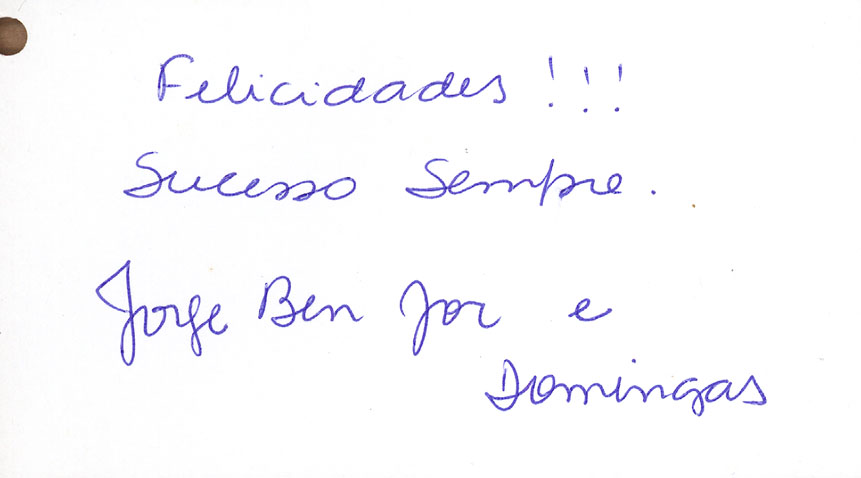 Felicidades !!!
Sucesso Sempre.
Jorge Ben Jor e
Domingas